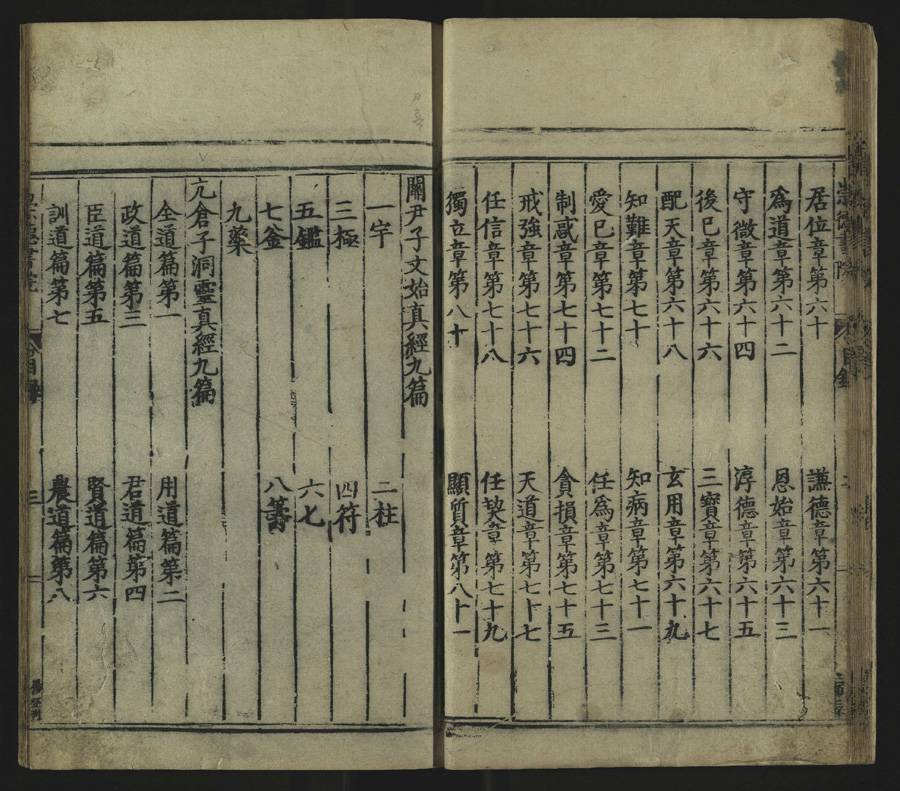 崇德書院 目錄
居位章第六十 謙德章第六十一
爲道章第六十二 恩始章第六十三
守微章第六十四 淳德章第六十五
後已章第六十六 三寶章第六十七
配天章第六十八 玄用章第六十九
知難章第七十 知病章第七十一
愛已章第七十二 任爲章第七十三
制惑章第七十四 貪損章第七十五
戒強章第七十六 天道章第七十七
任信章第七十八 任契章第七十九
獨立章第八十 顯質章第八十一
關尹子文始真經九篇
一宇 二柱
三極 四符
五鑑 六七
七釜 八籌
九藥
亢倉子洞靈真經九篇
全道篇第一 用道篇第二
政道篇第三 君道篇第四
臣道篇第五 賢道篇第六
訓道篇第七 農道篇第八
崇德書院 目錄 三